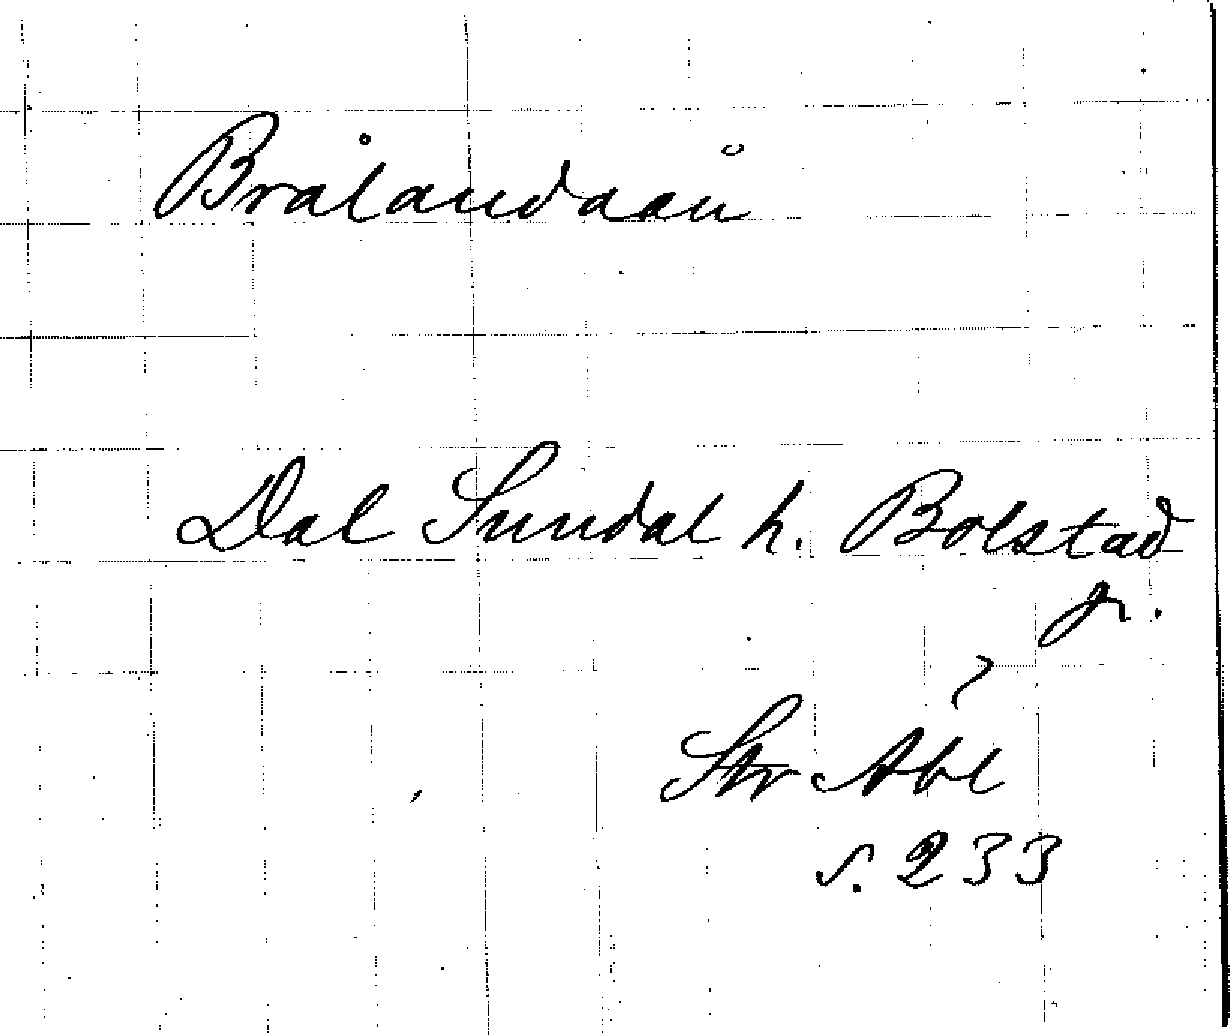 Brålandaån
Dal Sundal h. Bolstad
Str Abl
s. 233